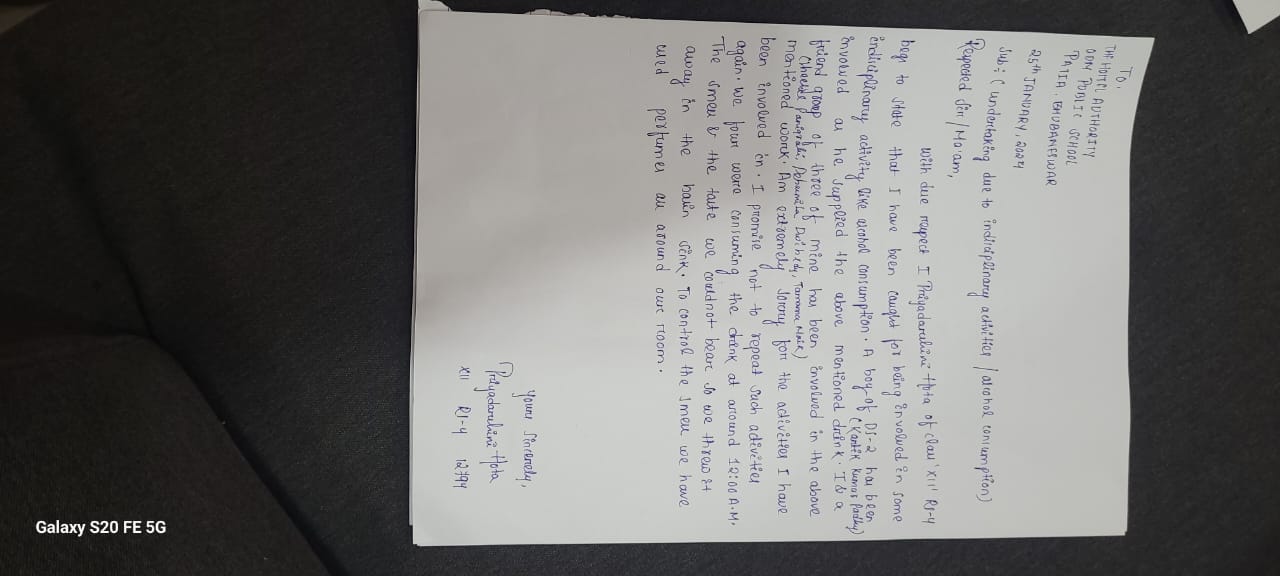 To,
THE HOSTEL AUTHORITY
ODM PUBLIC SCHOOL
PATIA, BHUBANESWAR
25th JANUARY, 2024
Sub:- (undertaking due to indisciplinary activities / alcohol consumption)
Respected Sir/Ma'am,
With due respect I Priyadarshini Hota of class 'XII' RS-4
begs to state that I have been caught for being involved in some
indisciplinary activity like alcohol consumption. A boy of DS-2 has been
(Kartik Kumar Padhy)
involved as he supplied the above mentioned drink. I & a
friend group of three of mine has been involved in the above
(Panigrahi, Dwibedy, Naik)
mentioned work. Am extremely sorry for the activities I have
been involved in. I promise not to repeat such activities
again. We four were consuming the drink at around 12:00 A.M.
The smell & the taste we couldnot bear so we threw it
away in the basin sink. To control the smell we have
used perfumes all around our room.
Yours Sincerely,
Priyadarshini Hota
XII RS-4 12794
Galaxy S20 FE 5G